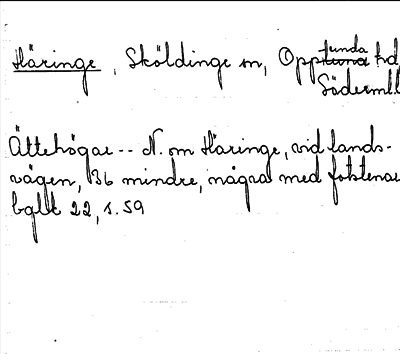 Häringe, Sköldinge sn, Oppunda hd
Söderml
Ättehögar -- N. om Häringe, vid lands-
vägen, 36 mindre, några med fotstenar
bglt 22, s. 59